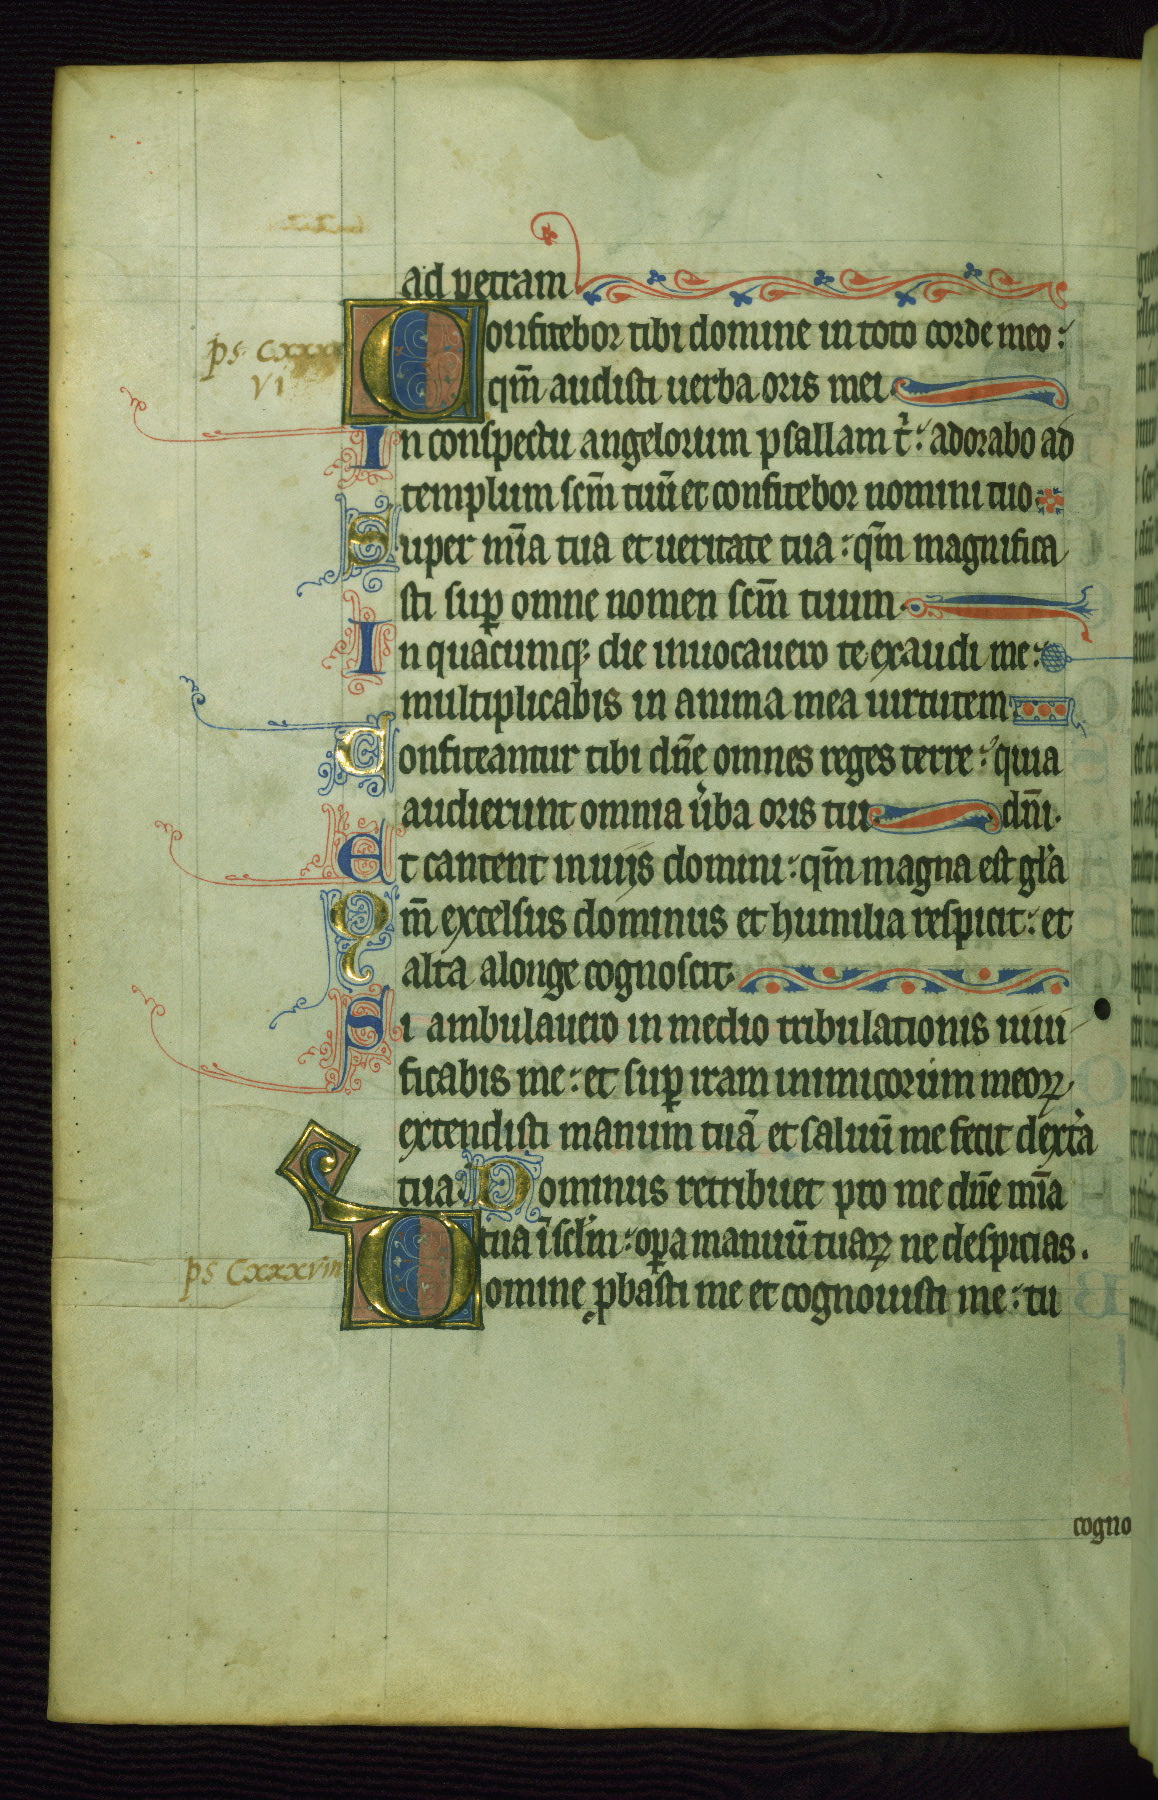 ad petram
Confitebor tibi domine in toto corde meo:
qm̄ audisti uerba oris mei.
ps cxxx
vi
In conspectu angelorum psallam t̉: adorabo ad
templum scm̄ tuū et confitebor nomini tuo.
Super mīa tua et ueritate tua: qm̄ magnifica
sti suꝑ omne nomen scm̄ tuum.
In quacumqꝫ die inuocauero te exaudi me:
multiplicabis in anima mea uirtutem.
Confiteantur tibi dn̄e omnes reges terre: quia
audierunt omnia ủba oris tui
dn̄i.
Et cantent in uijs domini: qm̄ magna est gl̄a
Qm̄ excelsus dominus et humilia respicit: et
alta alonge cognoscit.
Si ambulauero in medio tribulationis uiui
ficabis me: et suꝑ iram inimicorum meoꝝ
extendisti manum tuā et saluū me fecit dext̉a
tua. Dominus retribuet pro me dn̄e mīa
tua ī sc̄lm: oꝑa manuū tuaꝝ ne despicias.
ps cxxxviii
Domine ꝓbasti me et cognouisti me: tu
cogno